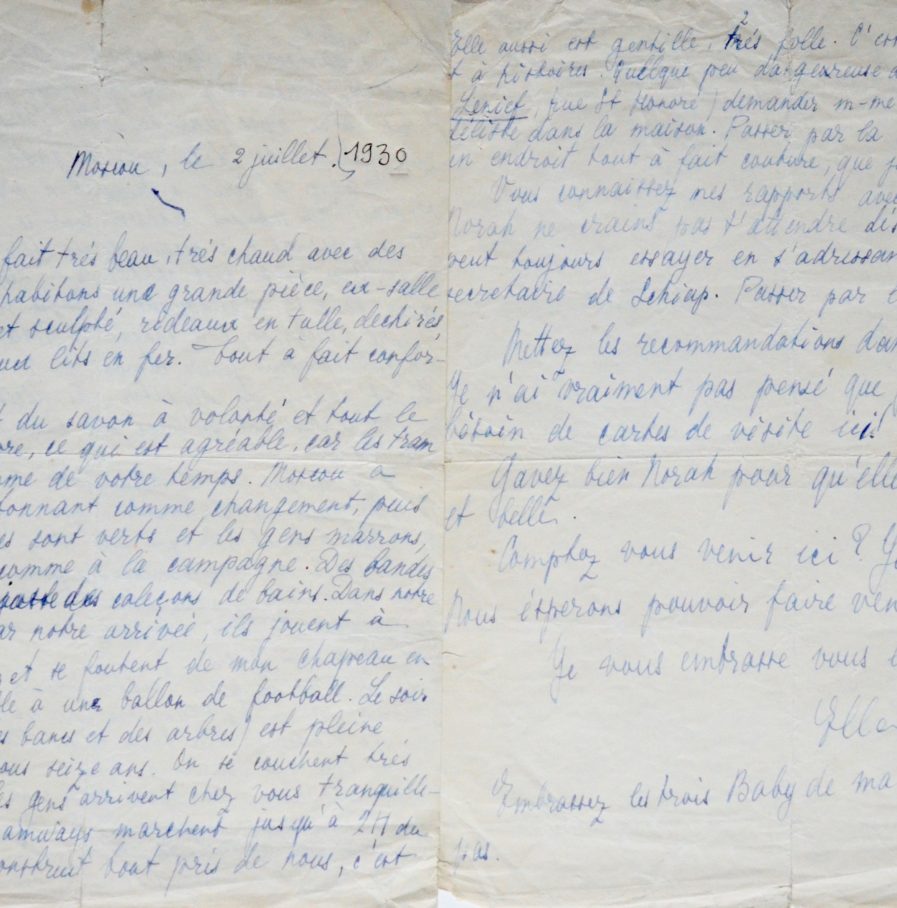 Moscou, le 2 juillet. (1930
fait trés beau, trés chaud avec des
habitons une grande pièce, ex-salle
t sculpté, rideaux en tulle, dechirés
lits en fer. Tout à fait confor-
t du savon à volonté et tout le
re, ce qui est agréable, car les tram
me de votre temps. Moscou a
tonnant comme changement, puis
es sont verts et les gens marrons,
comme à la campagne. Des bandes
caleçons de bains. Dans notre
ar notre arrivée, ils jouent à
et se foutent de mon chapeau en
lle à une ballon de football. Le soir
s bancs et des arbres) est pleine
ous seize ans. On se couchent trés
es gens arrivent chez vous tranquille-
amways marchent jusqu'à 2H du
onstruit tout près de nous, c'est
2
Elle aussi est gentille, trés folle. C'es
t à histoires. Quelque peu dangereuse
, rue St Honoré) demander m-me
déliste dans la maison. Passer par la
un endroit tout à fait couture, que j
Vous connaissez mes rapports avec
Norah ne craint pas s'attendre dés
peut toujours essayer en s'adressan
secretaire de Schiap. Passer par
Mettez les recommandations dan
Je n'ai vraiment pas pensé que
besoin de cartes de visite ici!
Gavez bien Norah pour qu'elle
et belle.
Comptez vous venir ici? Je
Nous ésperons pouvoir faire ven
Je vous embrasse vous
Ella
Embrassez les trois Baby de ma
pas.